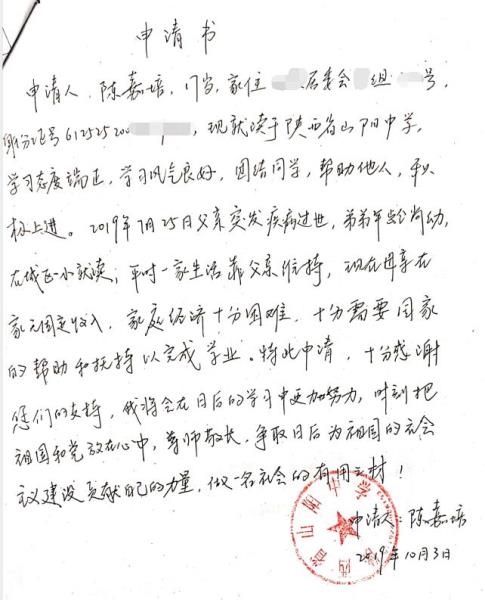 申请书
申请人:陈嘉培,17岁,家位 居委会 组 号,
身份证号612525200 ,现就读于陕西省山阳中学,
学习态度端正,学习风气良好,团结同学,帮助他人,积
极上进。2019年7月25日父亲突发疾病过世,弟弟年龄尚幼,
在城区一小就读;平时一家生活靠父亲维持,现在母亲在
家无固定收入,家庭经济十分困难,十分需要国家
的帮助和扶持以完成学业。特此申请,十分感谢
您们的支持,我将会在日后的学习中更加努力,时刻把
祖国和党放在心中,尊师敬长,争取日后为祖国的社会
主义建设贡献自己的力量,做一名社会的有用之材!
申请人:陈嘉培
2019年10月3日
陕西省山阳中学